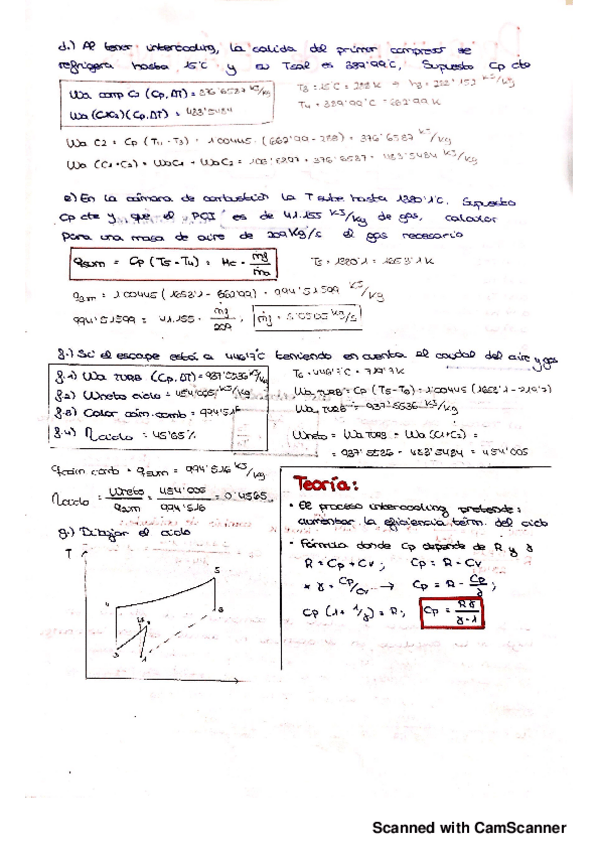 d.) Al tener intercooling, la salida del primer compresor se
refrigera hasta 15°C y su Tsal es 389'99°C, Supuesto Cp cte
Wa comp C2 (Cp, ΔT) = 376'6587 KJ/kg
Wa (C1+C2) (Cp, ΔT) = 483'5484
T3 = 15°C = 288 K
T4 = 389'99°C = 662'99 K
Wa C2 = Cp (T4 - T3) = 1'00445 (662'99 - 288) = 376'6587 KJ/kg
Wa (C1+C2) = WaC1 + WaC2 = + 376'6587 = 483'5484 KJ/kg
e) En la cámara de combustión la T sube hasta 1380'1°C. Supuesto
Cp cte y que el PCI es de 41.155 KJ/kg de gas, calcular
para una masa de aire de 209 Kg/s el gas necesario
qsum = Cp (T5 - T4) = Hc · mg/ma
T5 = 1380'1 = 1653'1 K
qsum = 1'00445 (1653'1 - 662'99) = 994'51599 KJ/kg
994'51599 = 41.155 · mg/209
mg = 5'0505 Kg/s
f.) Si el escape está a 446'7°C teniendo en cuenta el caudal del aire y gas
f.1) Wa TURB (Cp, ΔT) = 937'5536 KJ/kg
f.2) Wneto ciclo = 454'005 KJ/kg
f.3) Calor cám. comb = 994'516
f.4) η ciclo = 45'65 %
T6 = 446'7°C = 719'7 K
Wa TURB = Cp (T5 - T6) = 1'00445 (1653'1 - 719'7)
Wa TURB = 937'5536 KJ/kg
Wneto = Wa TURB - Wa (C1+C2) =
= 937'5536 - 483'5484 = 454'005
qcám comb = qsum = 994'516 KJ/kg
η ciclo = Wneto/qsum = 454'005/994'516 = 0'4565
g.) Dibujar el ciclo
T
5
4
6
3
1
Teoría:
• El proceso intercooling pretende:
aumentar la eficiencia térm. del ciclo
• Fórmula donde Cp depende de R y γ
R = Cp + Cv ; Cp = R - Cv
* γ = Cp/Cv → Cp = R - Cp/γ ;
Cp (1 + 1/γ) = R ; Cp = Rγ/γ-1
Scanned with CamScanner